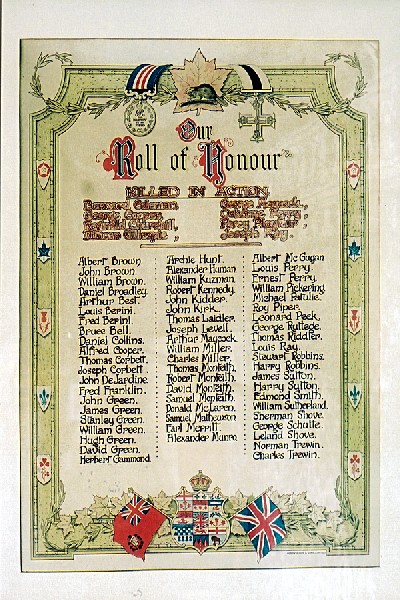 Our
Roll of Honour
KILLED IN ACTION
George
Joseph
Albert Brown
John Brown
William Brown.
Daniel Broadley
Arthur Best.
Louis Berini.
Fred Berini.
Bruce Bell.
Daniel Collins.
Alfred Cooper.
Thomas Corbett.
Joseph Corbett.
John DeJardine.
Fred Franklin.
John Green.
James Green.
Stanley Green.
William Green.
Hugh Green.
David Green.
Herbert Gammond.
Archie Hunt.
Alexander Human
William Kuzman.
Robert Kennedy.
John Kidder.
John Kirk.
Thomas Laidler.
Joseph Levell.
Arthur Maycock.
William Miller.
Charles Miller.
Thomas Monteith.
Robert Monteith.
David Monteith.
Samuel Monteith.
Donald McLaren.
Samuel Mathewson
Earl Merrill.
Alexander Munro.
Albert McGogan
Louis Perry.
Ernest Perry.
William Pickering
Michael
Roy Piper.
Leonard Peek.
George Ruttege.
Thomas Riddler.
Louis Ray.
Stewart Robbins.
Harry Robbins.
James Sutton.
Harry Sutton.
Edmond Smith.
William Sutherland.
Sherman Shove.
George Schulte.
Leland Shove.
Norman Trewin.
Charles Trewin.